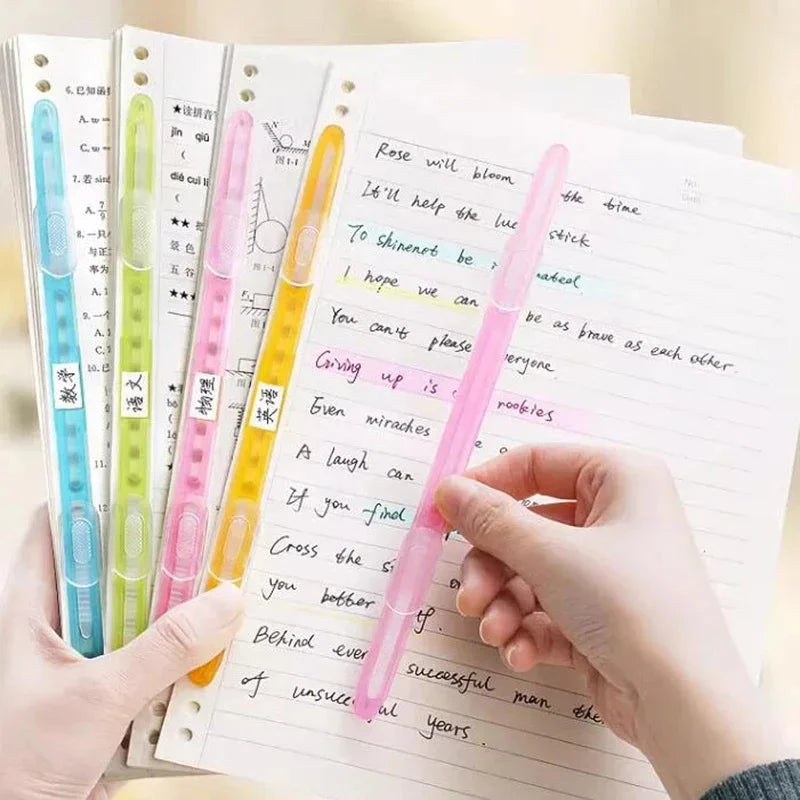 6. 已知函
A. w =
C. w =
7. 若 sin
A. 7/9
8. 一只
与正
率为
A. 1
9. 一个
A.
C.
10.
A. B
11.
12.
★读拼音
jīn qiū
(
dié cuì
(
★★
景色
五谷
★★★
N
M
图1-1
图1-1
F₁
数学
语文
物理
英语
No.
Date
Rose will bloom the time
It'll help the luc stick
To shinenot be nated
I hope we can be as brave as each other.
You can't please eryone.
Giving up is rookies
Even miraches
A laugh can
If you find
Cross the s
you better if.
Behind ever successful man the
of unsuccessful years.